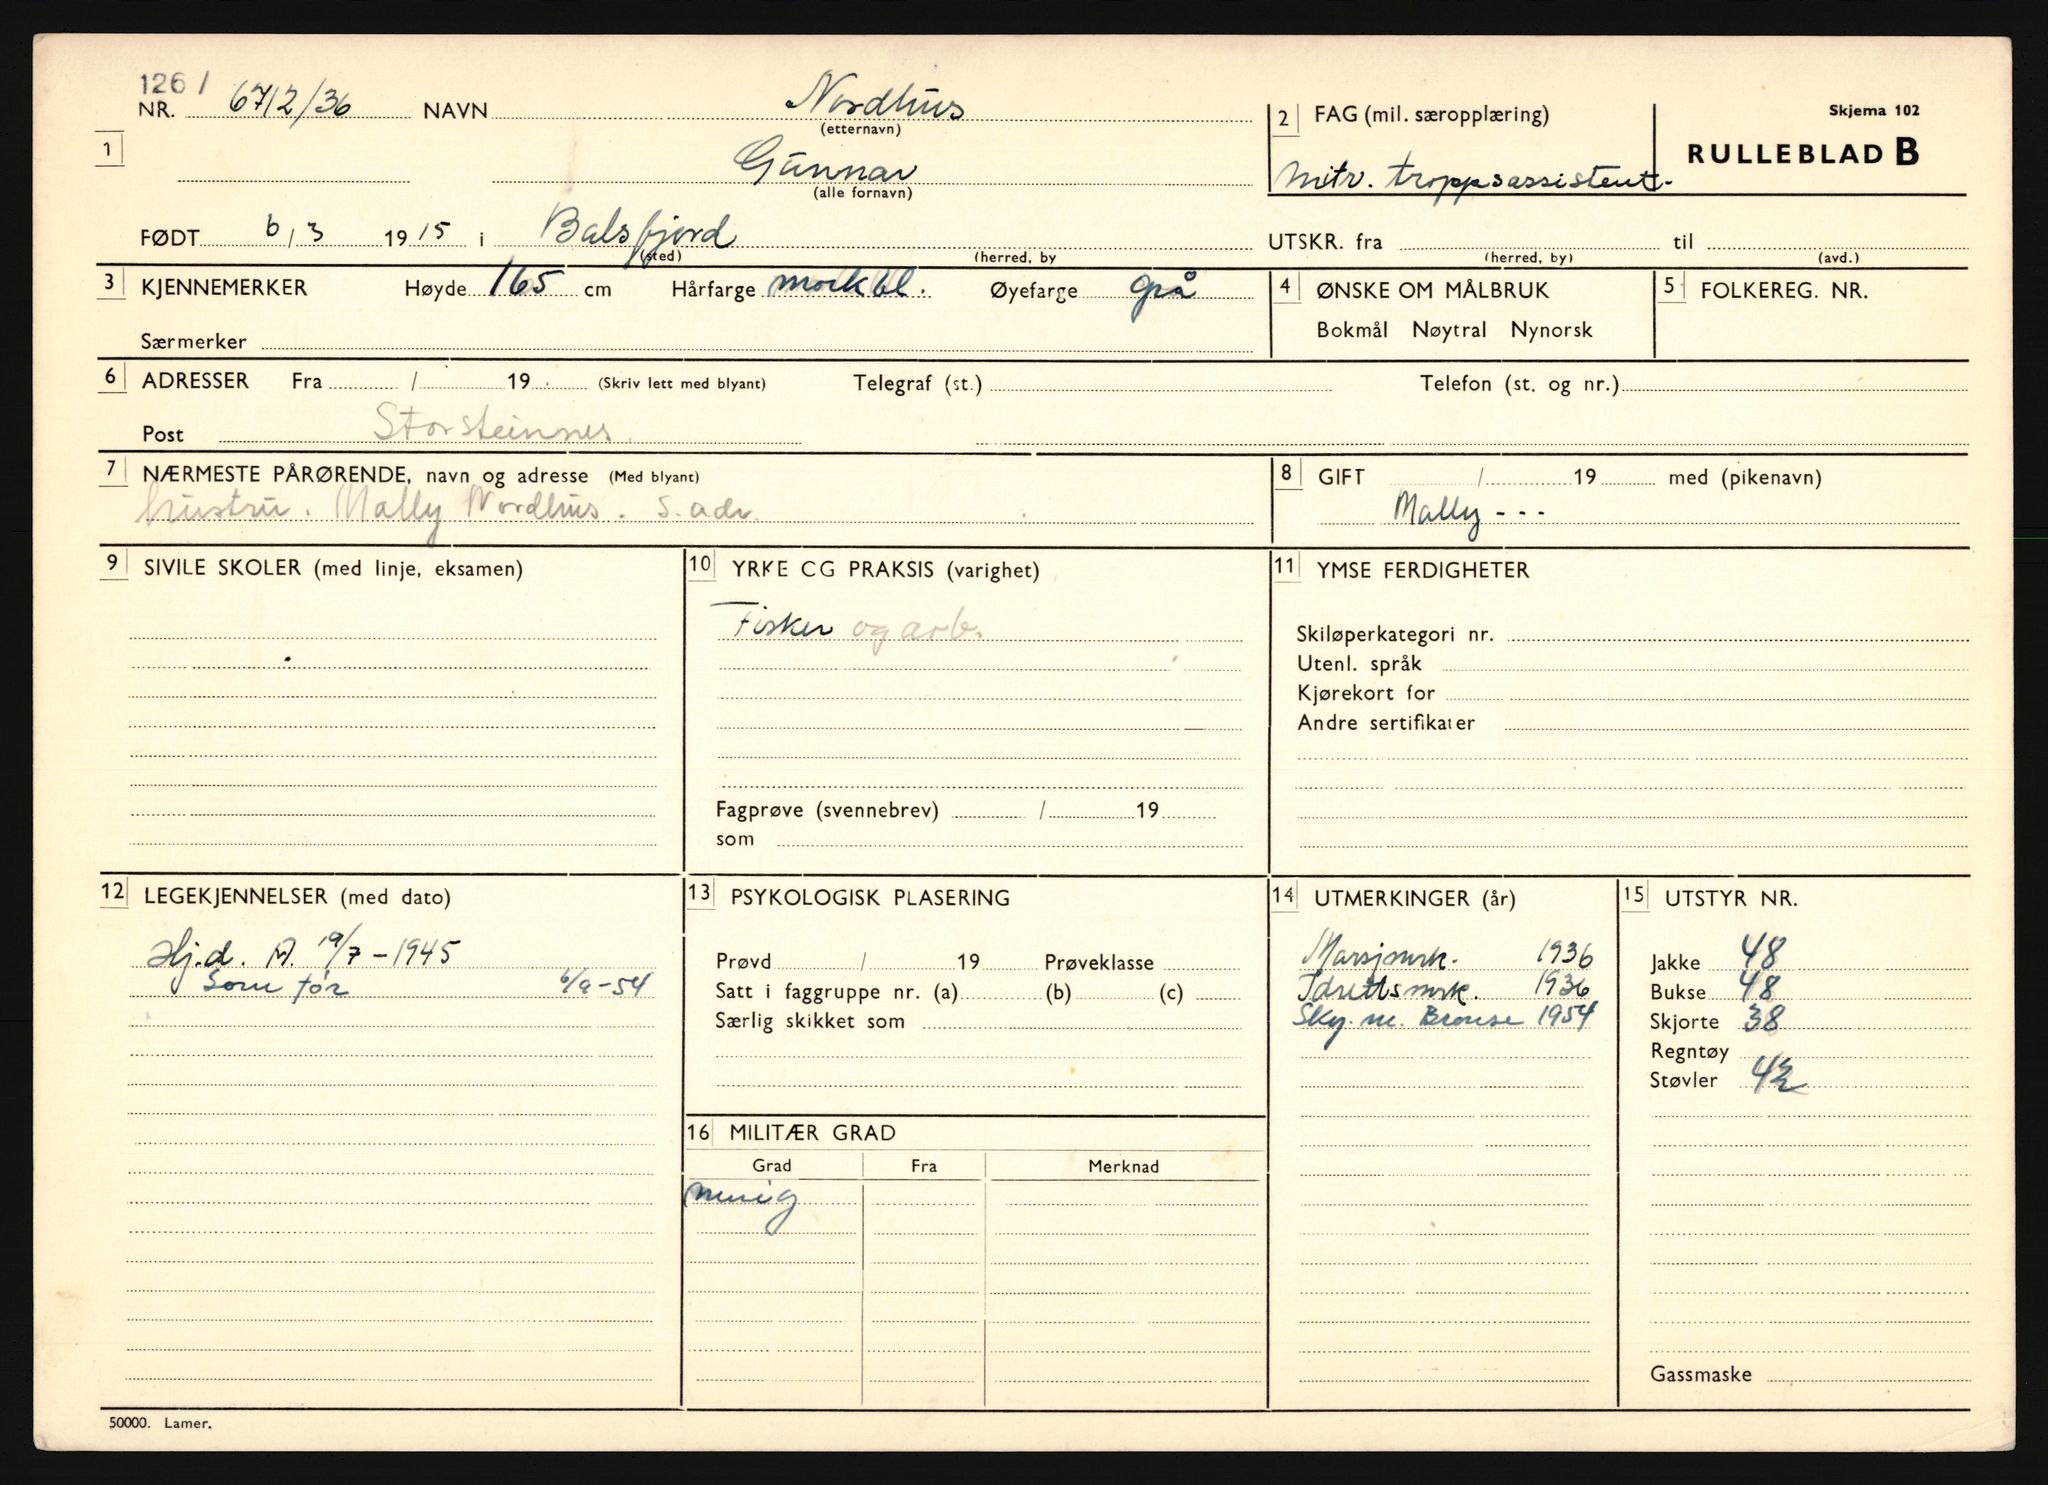 126 /
NR. 6712/36 NAVN Nordhus
(etternavn)
2 FAG (mil. særopplæring)
Skjema 102
RULLEBLAD B
1
Gunnar
(alle fornavn)
Mitr. troppsassistent.
FØDT 6/3 1915 i Balsfjord
(sted) (herred, by
UTSKR. fra til
(herred, by) (avd.)
3 KJENNEMERKER Høyde 165 cm Hårfarge mørkbl. Øyefarge grå
Særmerker
4 ØNSKE OM MÅLBRUK
Bokmål Nøytral Nynorsk
5 FOLKEREG. NR.
6 ADRESSER Fra / 19 (Skriv lett med blyant) Telegraf (st.) Telefon (st. og nr.)
Post Storsteinnes.
7 NÆRMESTE PÅRØRENDE, navn og adresse (Med blyant)
hustru. Mally Nordhus. s. adr.
8 GIFT / 19 med (pikenavn)
Mally - - -
9 SIVILE SKOLER (med linje, eksamen)
10 YRKE CG PRAKSIS (varighet)
Fisker og arb.
Fagprøve (svennebrev) / 19
som
11 YMSE FERDIGHETER
Skiløperkategori nr.
Utenl. språk
Kjørekort for
Andre sertifikater
12 LEGEKJENNELSER (med dato)
Hj.d. A. 19/7 - 1945
Som før 6/9-54
13 PSYKOLOGISK PLASERING
Prøvd / 19 Prøveklasse
Satt i faggruppe nr. (a) (b) (c)
Særlig skikket som
14 UTMERKINGER (år)
Marsjmrk. 1936
Idrettsmrk. 1936
Sky. m. Bronse 1954
15 UTSTYR NR.
Jakke 48
Bukse 48
Skjorte 38
Regntøy
Støvler 42
Gassmaske
16 MILITÆR GRAD
Grad Fra Merknad
menig
50000. Lamer.